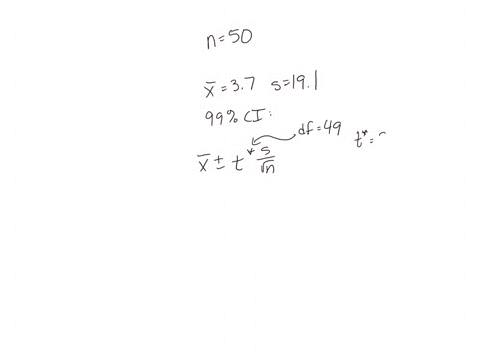 n=50
x̄=3.7 s=19.1
99% CI:
df=49
t*=
x̄ ± t* s/√n